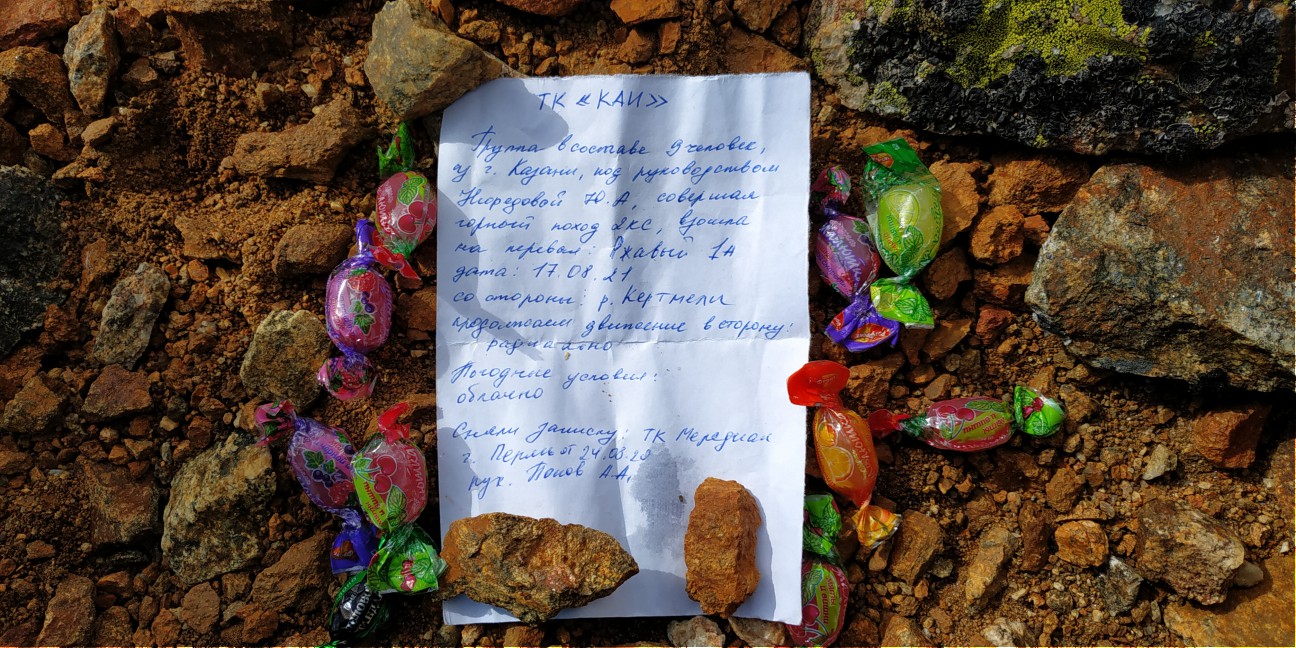 ТК «КАИ»
Группа в составе 9 человек,
из г. Казани, под руководством
Ю.А, совершая
горный поход 2кс, взошла
на перевал: Ржавый 1А
дата: 17.08.21
со стороны: р. Кертмели
продолжаем движение в сторону:
радиально
Погодные условия:
облачно
Сняли записку: ТК Меридиан
г. Пермь от 24.08.20
рук. Попов А.А,